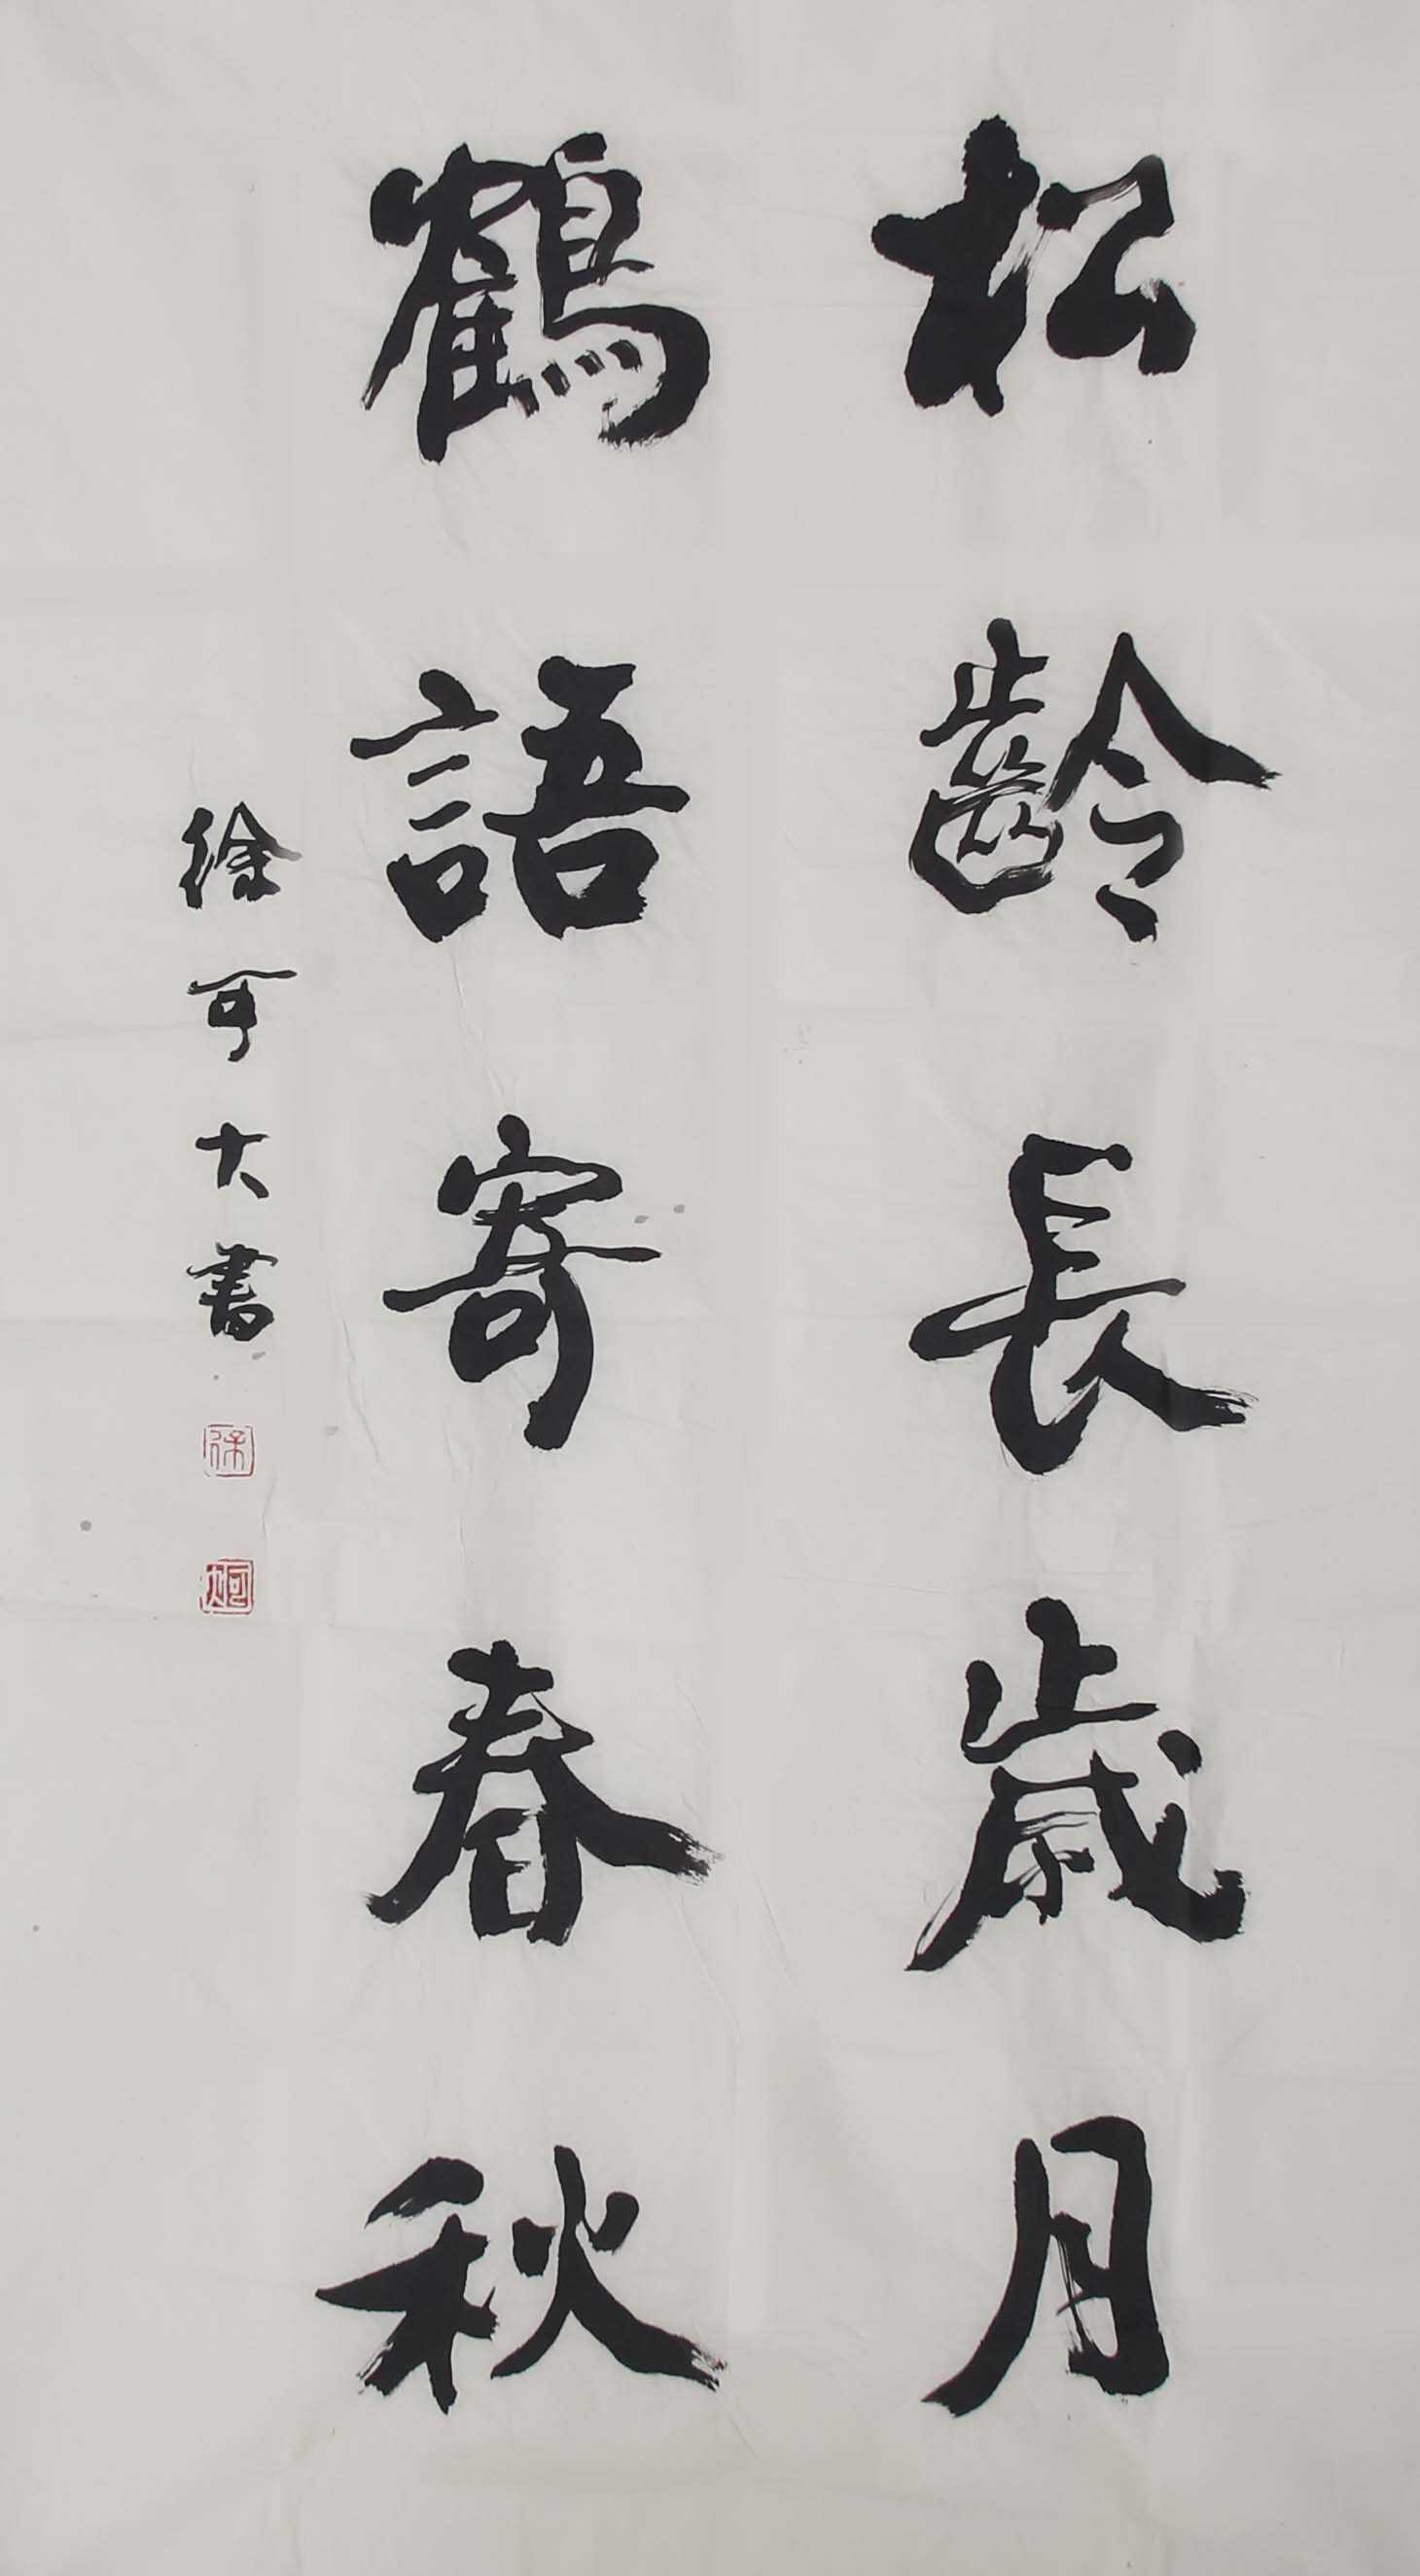 松齡長歲月
鶴語寄春秋
徐可大書
徐
可大